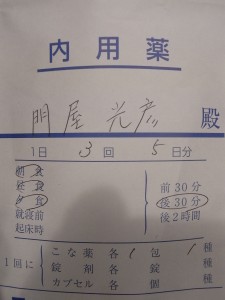 内用薬
門屋光彦 殿
1日 3 回 5 日分
朝食
昼食 前30分
夕食 後30分
就寝前 後2時間
起床時
1回に こな薬 各 1 包 1 種
錠剤 各 錠 種
カプセル 各 個 種